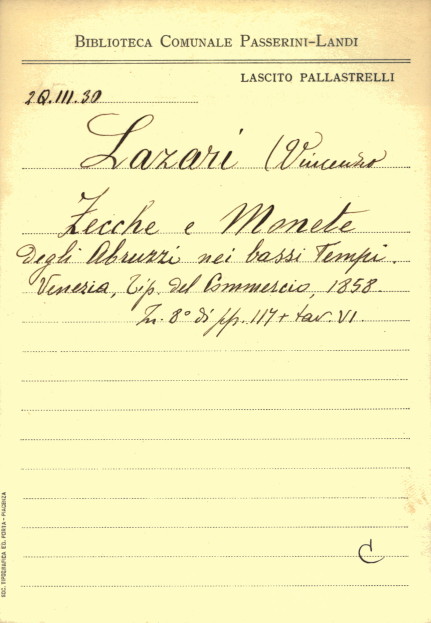 BIBLIOTECA COMUNALE PASSERINI-LANDI
LASCITO PALLASTRELLI
2Q.III.30
Lazari (Vincenzo
Zecche e Monete
degli Abruzzi nei bassi Tempi.
Venezia, Tip. del Commercio, 1858.
In. 8° di pp. 117 + tav. VI.
C
SOC. TIPOGRAFICA ED. PORTA - PIACENZA